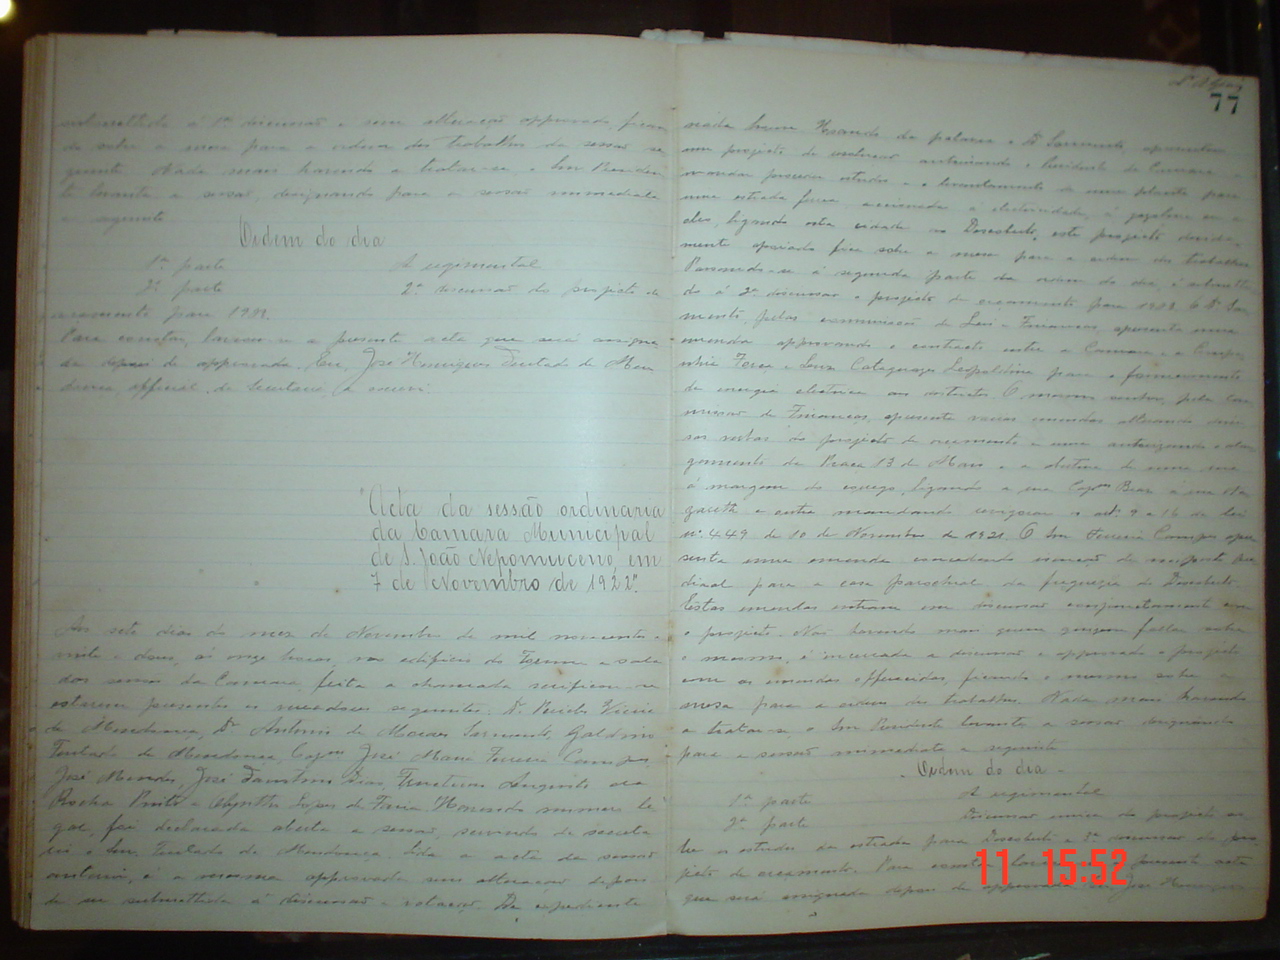 submettido á 1ª discussão e sem alteração approvado, fican
do sobre a mesa para a ordem dos trabalhos da sessão se
guinte. Nada mais havendo a tratar-se o Snr Presiden
te levanta a sessão, designando para a sessão immediata
a seguinte
Ordem do dia
1ª parte A regimental
2ª parte 2ª discussão do projecto de
orçamento para 1923.
Para constar, lavrou-se a presente acta que será assigna
da depois de approvada. Eu, José Henriques Furtado de Men
donça, official de Secretaria a escrevi.
"Acta da sessão ordinaria
da Camara Municipal
de S. João Nepomuceno, em
7 de Novembro de 1922".
Aos sete dias do mez de Novembro de mil novecentos e
vinte e dous, ás onze horas, no edificio do Forum e sala
das sessões da Camara, feita a chamada verificou-se
estarem presentes os vereadores seguintes: Dr.
de Mendonça, Dr. Antonio de Moraes Sarmento, Galdino
Furtado de Mendonça, Capm José Maria Ferreira Campos,
José Mendes, José Faustino Dias, Augusto da
Rocha Havendo numero le
gal, foi declarada aberta a sessão, servindo de secreta
rio o Snr. Furtado de Mendonça. Lida a acta da sessão
anterior, é a mesma approvada sem alteração depois
de ser submettida á discussão e votação. De expediente
77
nada houve. Usando da palavra o Dr. Sarmento, apresenta
um projecto de autorisando o Presidente da Camara a
mandar proceder estudos e o levantamento de uma planta para
uma estrada ferrea accionada á electricidade, á gazolina ou a
ligando esta cidade ao Descoberto, este projecto devida
mente apoiado fica sobre a mesa para a ordem dos trabalhos
Passando-se á segunda parte da ordem do dia, é submetti
do á 2ª discussão o projecto de orçamento para 1923. O Dr. Sar
mento, pela commissão de Leis e Finanças, apresenta uma
emenda approvando o contracto entre a Camara e a Compa
nhia Força e Luz Cataguazes Leopoldina para o fornecimento
de energia electrica aos districtos. O mesmo senhor, pela com
missão de Finanças, apresenta varias emendas alterando diver
sas verbas do projecto de orçamento e uma autorizando o alar
gamento da Praça 13 de Maio e a abertura de uma rua
á margem do corrego, ligando a rua Capm Braz a rua Na
zareth e outra mandando vigorar o art. 9 e 16 da lei
nº 449 de 10 de Novembro de 1921. O Snr Ferreira Campos apre
senta uma emenda concedendo isenção de imposto pre
dial para a casa parochial da freguezia do Descoberto.
Estas emendas entram em discussão conjunctamente com
o projecto. Não havendo mais quem queira fallar sobre
o mesmo, é encerrada a discussão e approvado o projecto
com as emendas offerecidas, ficando o mesmo sobre a
mesa para a ordem dos trabalhos. Nada mais havendo
a tratar-se, o Snr Presidente levanta a sessão designando
para a sessão immediata a seguinte
Ordem do dia
1ª parte A regimental
2ª parte Discussão unica do projecto so
bre o estudo da estrada para Descoberto e 3ª discussão do pro
jecto de orçamento. Para constar, presente acta
que será assignada depois de approvada. José Henriques
11 15:52